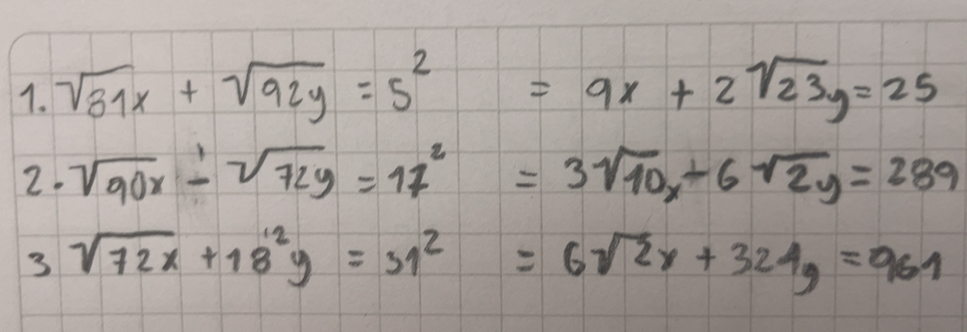 1. √81x + √92y = 5² = 9x + 2√23y = 25
2. √90x - √72y = 17² = 3√10x - 6√2y = 289
3 √72x + 18²y = 31² = 6√2x + 324y = 961